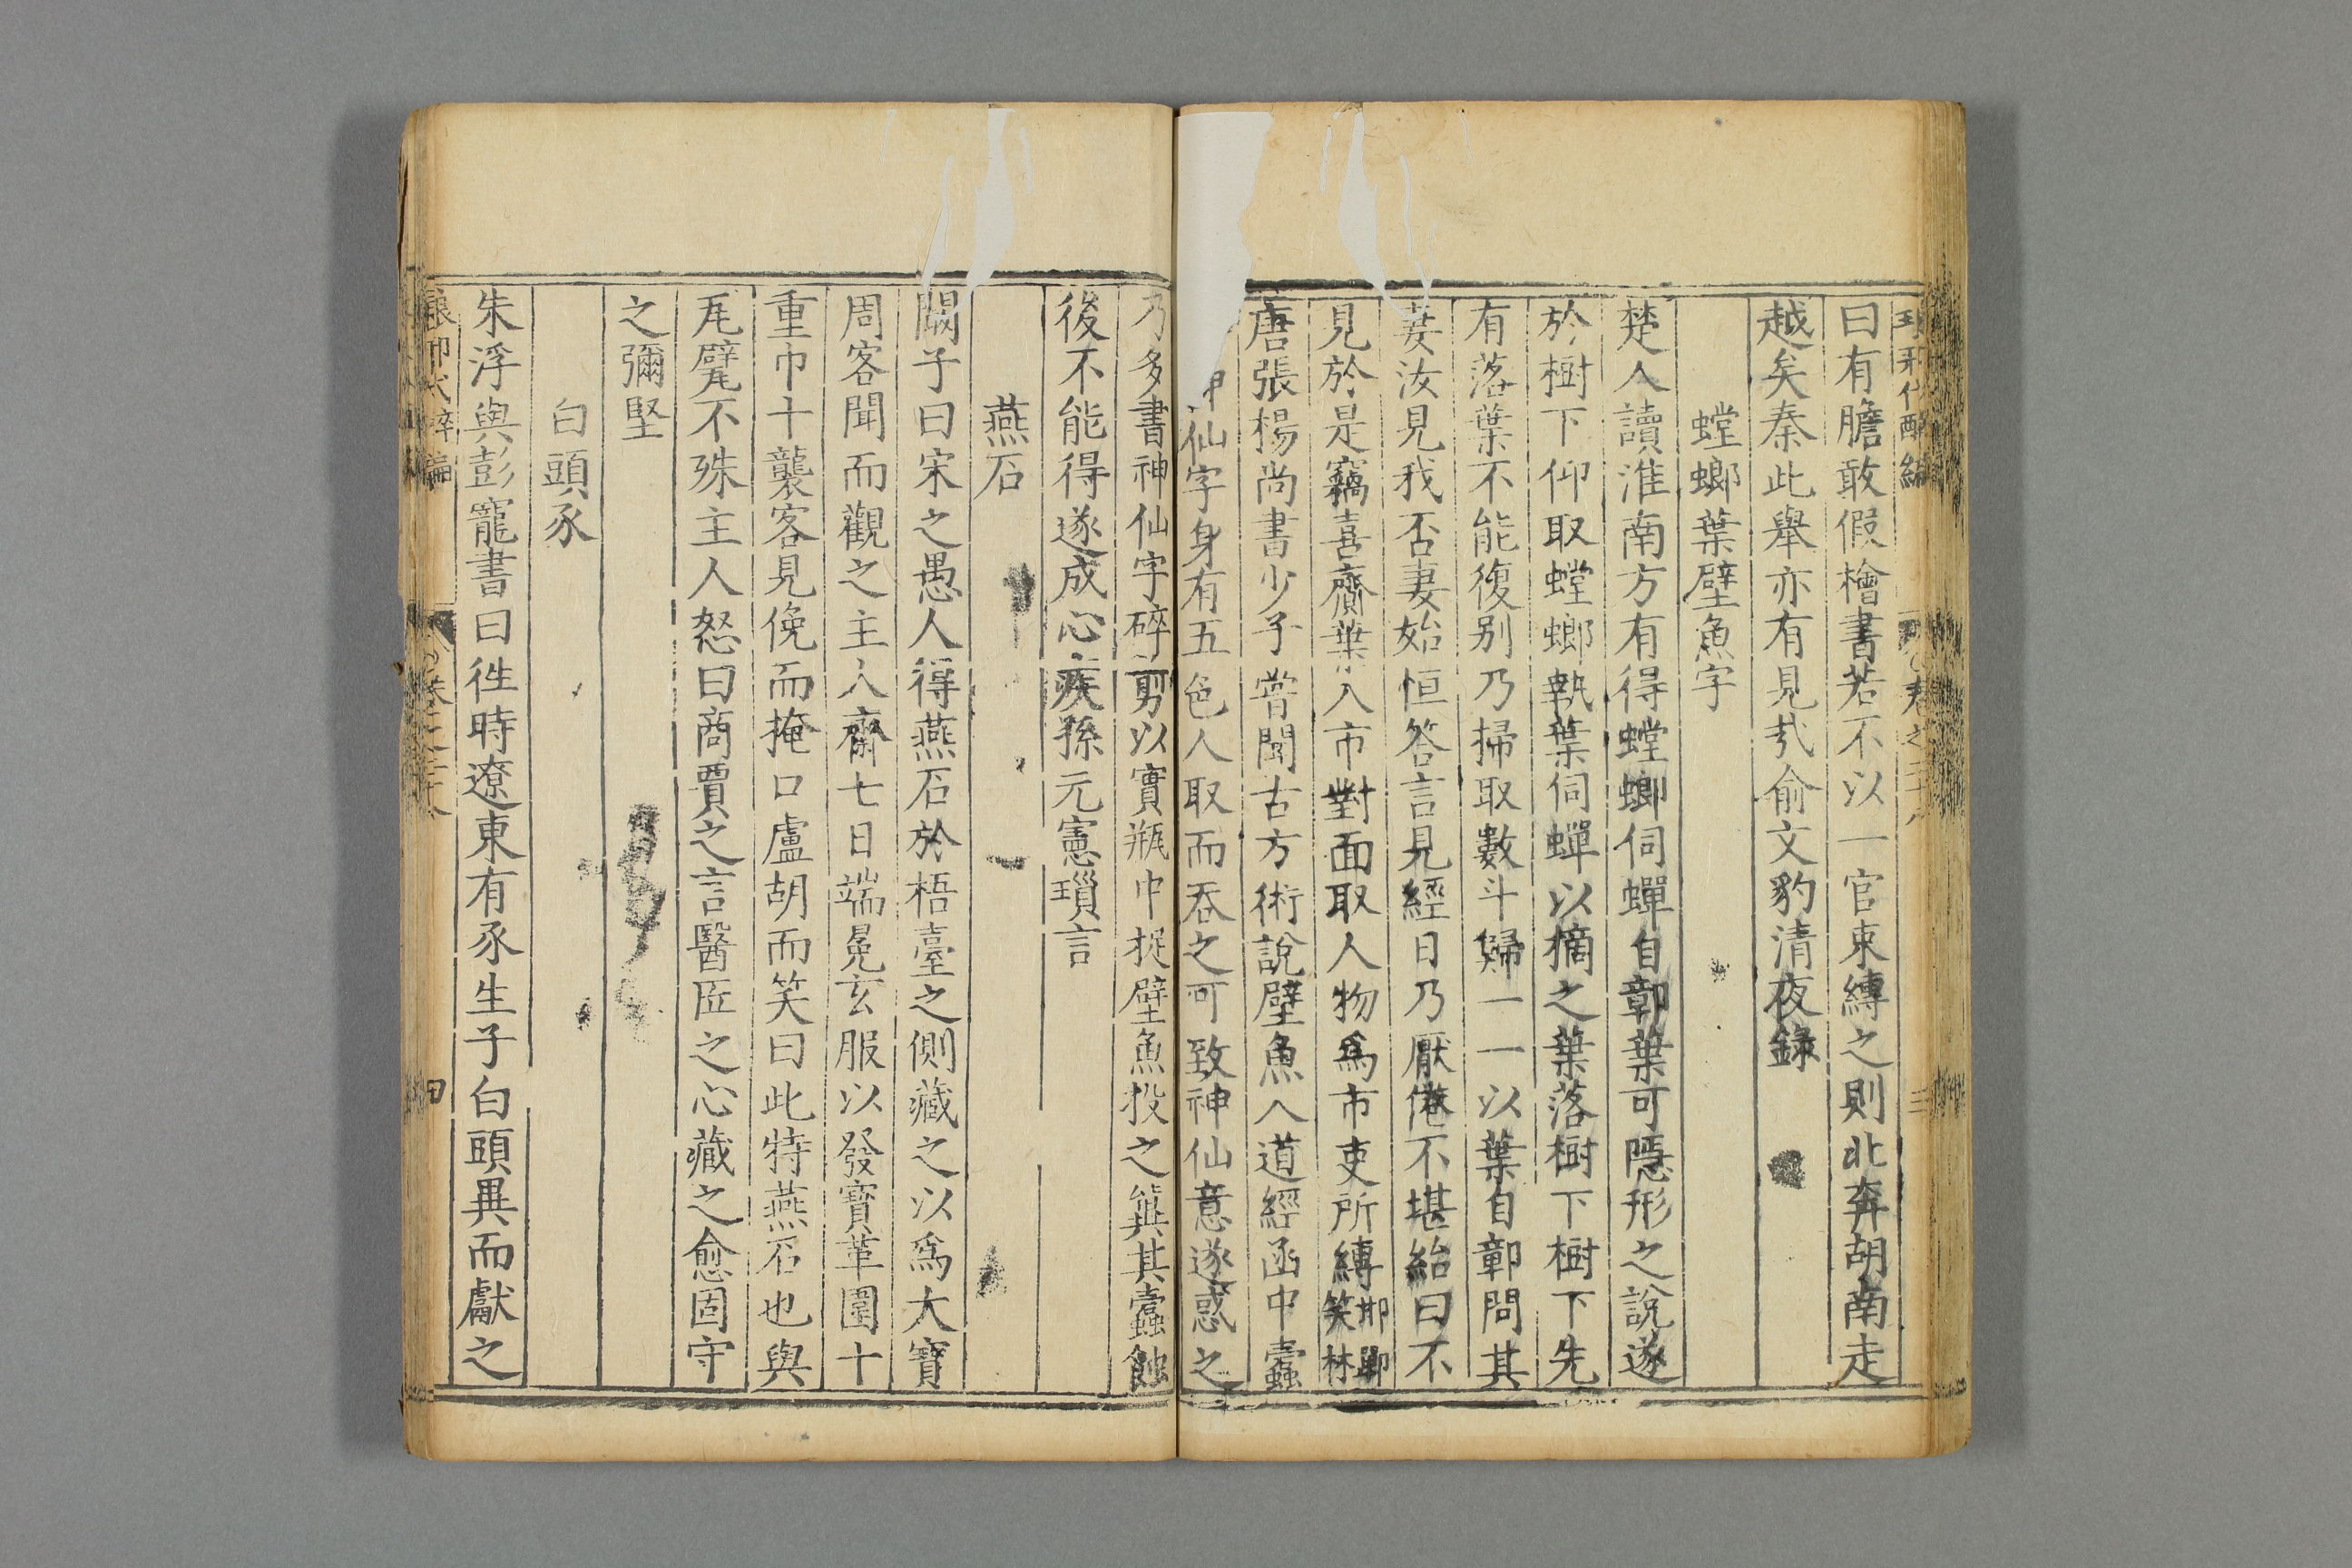 曰有膽敢假檜書若不以一官束縛之則北奔胡南走
越矣秦此舉亦有見㢤俞文豹清夜錄
螳螂葉壁魚字
楚人讀淮南方有得螳螂伺蟬自鄣葉可隱形之說遂
於樹下仰取螳螂執葉伺蟬以摘之葉落樹下樹下先
有落葉不能復别乃掃取數斗歸一一以葉自鄣問其
妻汝見我否妻始恒答言見經日乃厭倦不堪紿曰不
見於是竊喜齎葉入市對面取人物爲市吏所縛邯鄲笑林
唐張楊尚書少子嘗聞古方術說壁魚入道經函中蠹
仙字身有五色人取而吞之可致神仙意遂惑之
乃多書神仙字碎剪以實瓶中捉壁魚投之冀其蠹蝕
後不能得遂成心疾孫元憲瑣言
燕石
闞子曰宋之愚人得燕石於梧臺之側藏之以爲大寶
周客聞而觀之主人齋七日端冕玄服以發寶革匱十
重巾十襲客見俛而掩口盧胡而笑曰此特燕石也與
瓦甓不殊主人怒曰商賈之言醫匠之心藏之愈固守
之彌堅
白頭豕
朱浮與彭寵書曰徃時遼東有豕生子白頭異而獻之